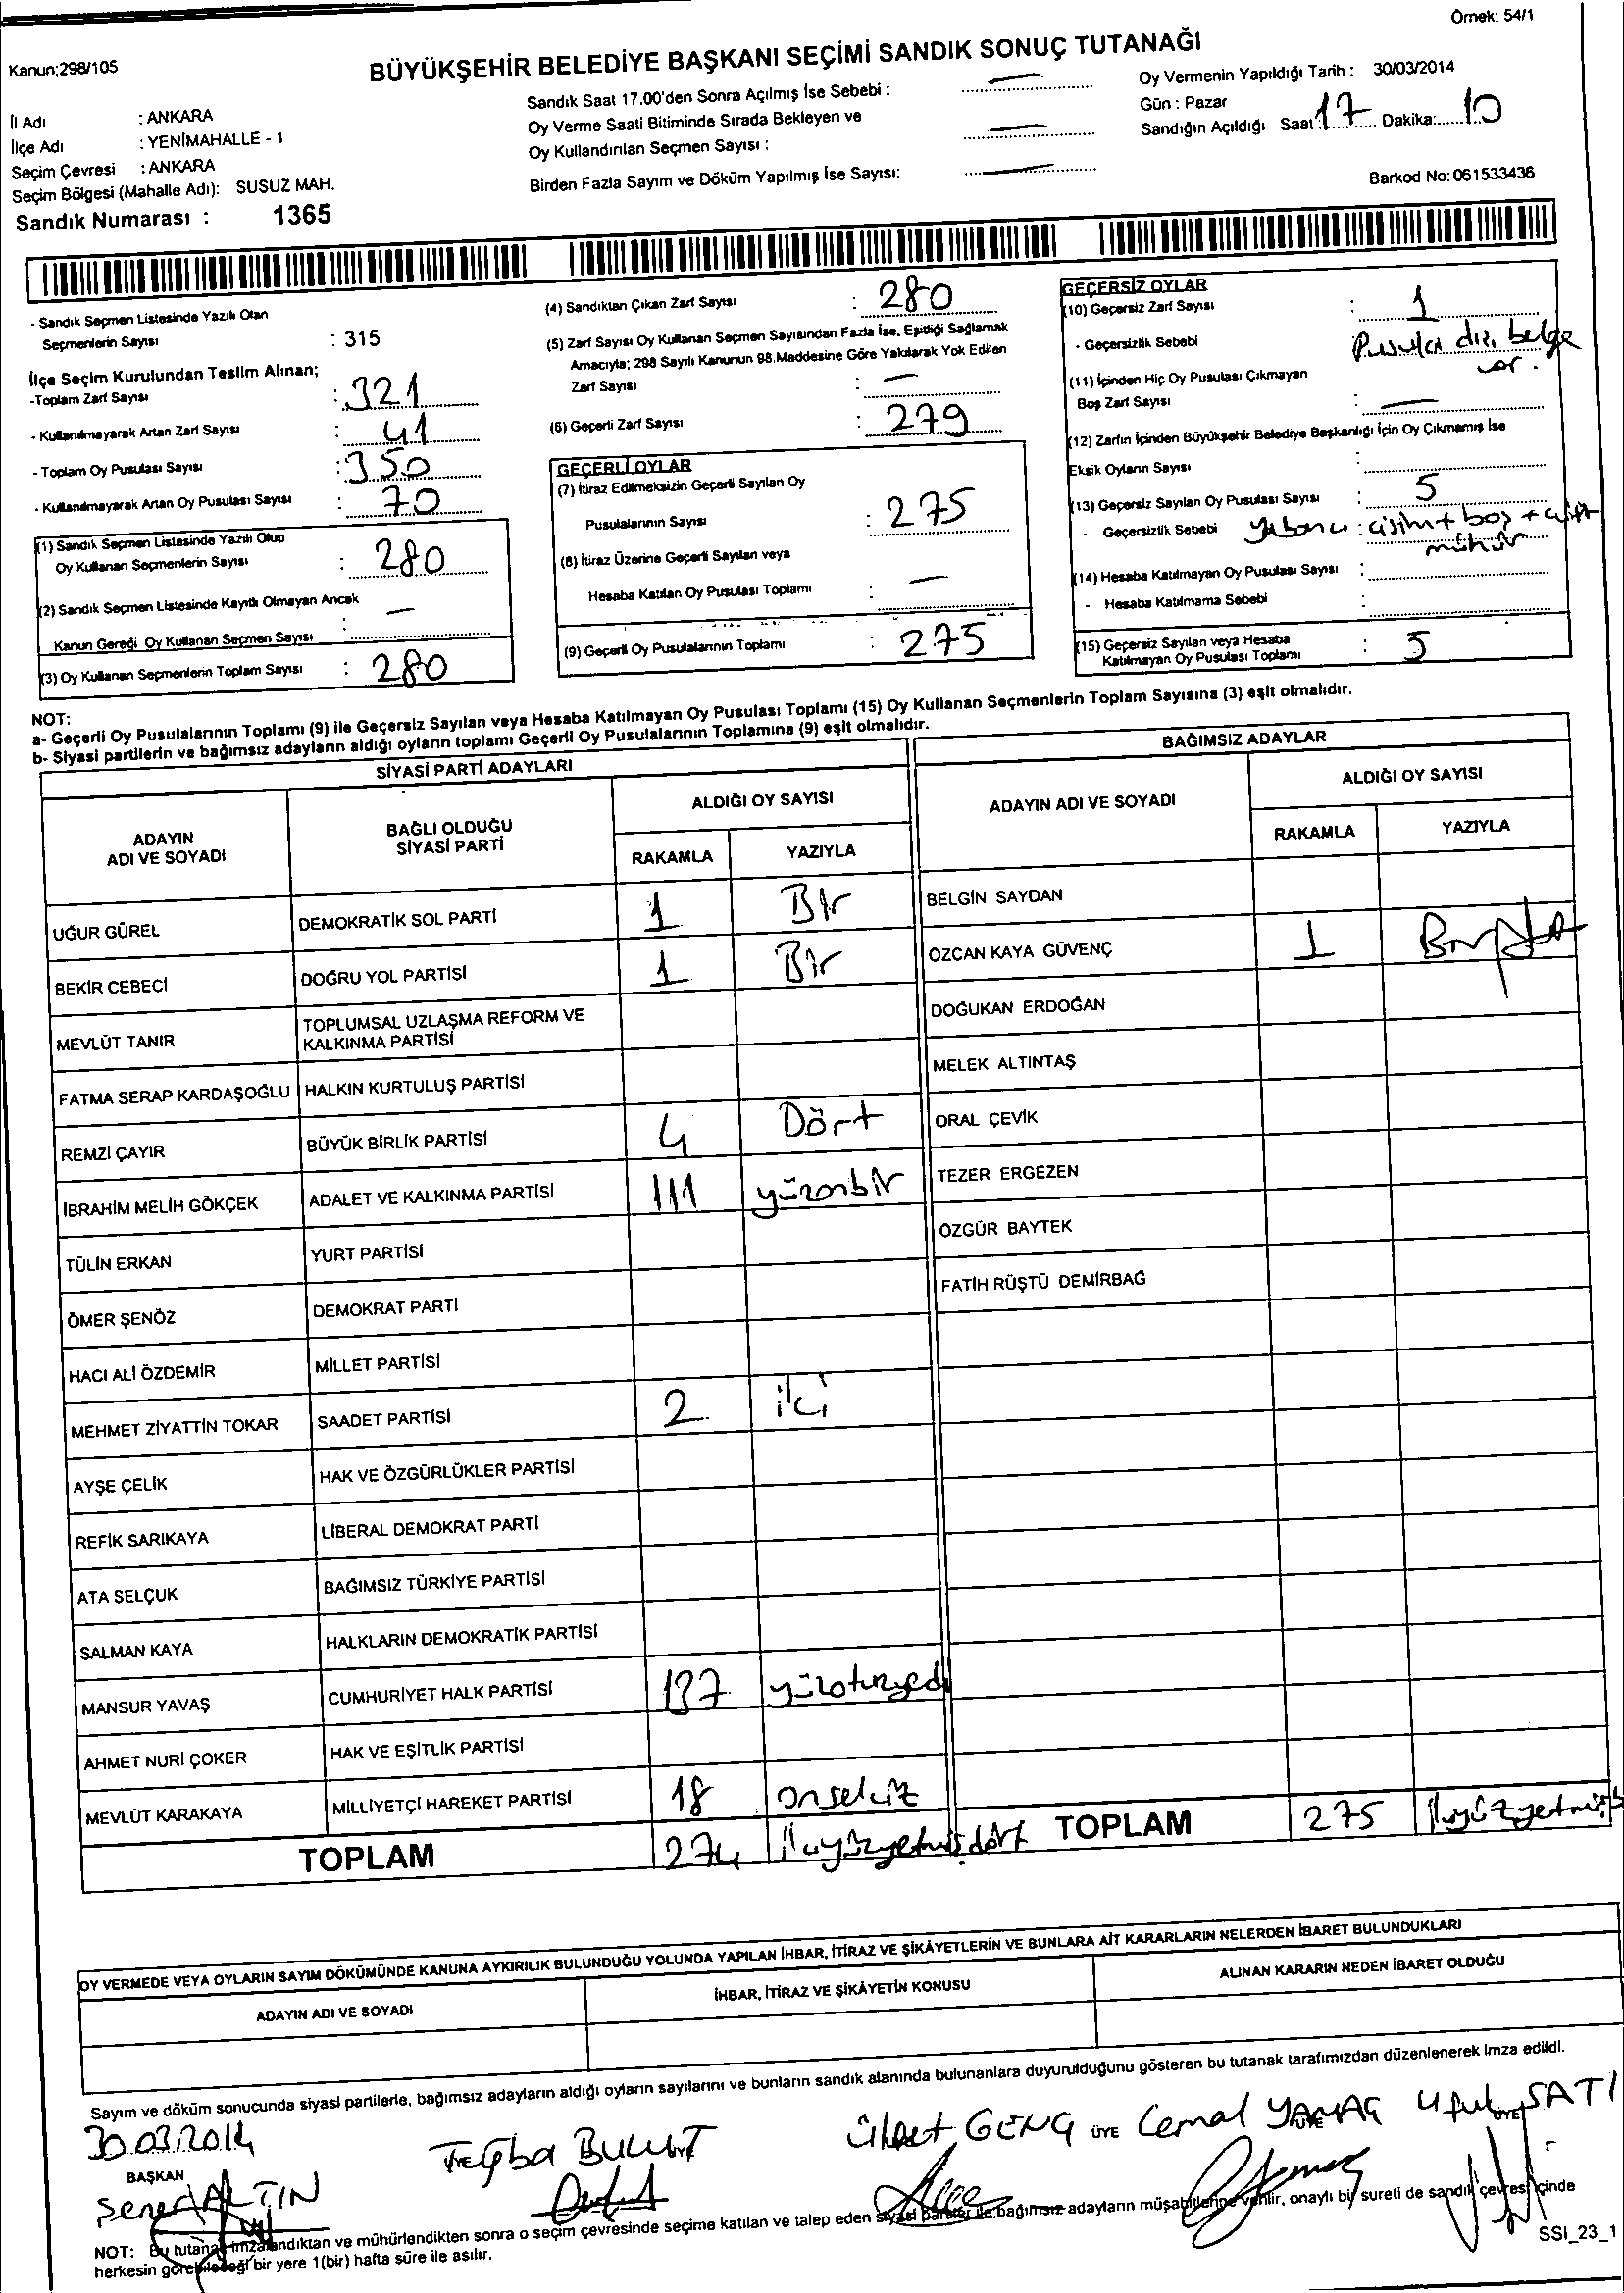 Örnek: 54/1
Kanun;298/105
BÜYÜKŞEHİR BELEDİYE BAŞKANI SEÇİMİ SANDIK SONUÇ TUTANAĞI
İl Adı : ANKARA
İlçe Adı : YENİMAHALLE - 1
Seçim Çevresi : ANKARA
Seçim Bölgesi (Mahalle Adı): SUSUZ MAH.
Sandık Numarası : 1365
Sandık Saat 17.00'den Sonra Açılmış İse Sebebi : —
Oy Verme Saati Bitiminde Sırada Bekleyen ve
Oy Kullandırılan Seçmen Sayısı : —
Birden Fazla Sayım ve Döküm Yapılmış İse Sayısı: —
Oy Vermenin Yapıldığı Tarih : 30/03/2014
Gün : Pazar
Sandığın Açıldığı Saat 17 Dakika: 10
Barkod No: 061533436
- Sandık Seçmen Listesinde Yazılı Olan
Seçmenlerin Sayısı : 315
İlçe Seçim Kurulundan Teslim Alınan;
-Toplam Zarf Sayısı : 321
- Kullanılmayarak Artan Zarf Sayısı : 41
- Toplam Oy Pusulası Sayısı : 350
- Kullanılmayarak Artan Oy Pusulası Sayısı : 70
(1) Sandık Seçmen Listesinde Yazılı Olup
Oy Kullanan Seçmenlerin Sayısı : 280
(2) Sandık Seçmen Listesinde Kayıtlı Olmayan Ancak
Kanun Gereği Oy Kullanan Seçmen Sayısı : —
(3) Oy Kullanan Seçmenlerin Toplam Sayısı : 280
(4) Sandıktan Çıkan Zarf Sayısı : 280
(5) Zarf Sayısı Oy Kullanan Seçmen Sayısından Fazla İse, Eşitliği Sağlamak
Amacıyla; 298 Sayılı Kanunun 98.Maddesine Göre Yakılarak Yok Edilen
Zarf Sayısı : —
(6) Geçerli Zarf Sayısı : 279
GEÇERLİ OYLAR
(7) İtiraz Edilmeksizin Geçerli Sayılan Oy
Pusulalarının Sayısı : 275
(8) İtiraz Üzerine Geçerli Sayılan veya
Hesaba Katılan Oy Pusulası Toplamı : —
(9) Geçerli Oy Pusulalarının Toplamı : 275
GEÇERSİZ OYLAR
(10) Geçersiz Zarf Sayısı : 1
- Geçersizlik Sebebi Pusula dışı belge
var.
(11) İçinden Hiç Oy Pusulası Çıkmayan
Boş Zarf Sayısı : —
(12) Zarfın İçinden Büyükşehir Belediye Başkanlığı İçin Oy Çıkmamış İse
Eksik Oyların Sayısı :
(13) Geçersiz Sayılan Oy Pusulası Sayısı : 5
- Geçersizlik Sebebi Yabancı cisim + boş + çift
mühür
(14) Hesaba Katılmayan Oy Pusulası Sayısı :
- Hesaba Katılmama Sebebi :
(15) Geçersiz Sayılan veya Hesaba
Katılmayan Oy Pusulası Toplamı : 5
NOT:
a- Geçerli Oy Pusulalarının Toplamı (9) ile Geçersiz Sayılan veya Hesaba Katılmayan Oy Pusulası Toplamı (15) Oy Kullanan Seçmenlerin Toplam Sayısına (3) eşit olmalıdır.
b- Siyasi partilerin ve bağımsız adayların aldığı oyların toplamı Geçerli Oy Pusulalarının Toplamına (9) eşit olmalıdır.
SİYASİ PARTİ ADAYLARI
ADAYIN
ADI VE SOYADI
BAĞLI OLDUĞU
SİYASİ PARTİ
ALDIĞI OY SAYISI
RAKAMLA YAZIYLA
UĞUR GÜREL DEMOKRATİK SOL PARTİ 1 Bir
BEKİR CEBECİ DOĞRU YOL PARTİSİ 1 Bir
MEVLÜT TANIR TOPLUMSAL UZLAŞMA REFORM VE
KALKINMA PARTİSİ
FATMA SERAP KARDAŞOĞLU HALKIN KURTULUŞ PARTİSİ
REMZİ ÇAYIR BÜYÜK BİRLİK PARTİSİ 4 Dört
İBRAHİM MELİH GÖKÇEK ADALET VE KALKINMA PARTİSİ 111 yüzonbir
TÜLİN ERKAN YURT PARTİSİ
ÖMER ŞENÖZ DEMOKRAT PARTİ
HACI ALİ ÖZDEMİR MİLLET PARTİSİ
MEHMET ZİYATTİN TOKAR SAADET PARTİSİ 2 iki
AYŞE ÇELİK HAK VE ÖZGÜRLÜKLER PARTİSİ
REFİK SARIKAYA LİBERAL DEMOKRAT PARTİ
ATA SELÇUK BAĞIMSIZ TÜRKİYE PARTİSİ
SALMAN KAYA HALKLARIN DEMOKRATİK PARTİSİ
MANSUR YAVAŞ CUMHURİYET HALK PARTİSİ 137 yüzotuzyedi
AHMET NURİ ÇOKER HAK VE EŞİTLİK PARTİSİ
MEVLÜT KARAKAYA MİLLİYETÇİ HAREKET PARTİSİ 18 onsekiz
TOPLAM 274 ikiyüzyetmişdört
BAĞIMSIZ ADAYLAR
ADAYIN ADI VE SOYADI
ALDIĞI OY SAYISI
RAKAMLA YAZIYLA
BELGİN SAYDAN
OZCAN KAYA GÜVENÇ 1 Bir
DOĞUKAN ERDOĞAN
MELEK ALTINTAŞ
ORAL ÇEVİK
TEZER ERGEZEN
OZGÜR BAYTEK
FATİH RÜŞTÜ DEMİRBAĞ
TOPLAM 275
OY VERMEDE VEYA OYLARIN SAYIM DÖKÜMÜNDE KANUNA AYKIRILIK BULUNDUĞU YOLUNDA YAPILAN İHBAR, İTİRAZ VE ŞİKÂYETLERİN VE BUNLARA AİT KARARLARIN NELERDEN İBARET BULUNDUKLARI
ADAYIN ADI VE SOYADI İHBAR, İTİRAZ VE ŞİKÂYETİN KONUSU ALINAN KARARIN NEDEN İBARET OLDUĞU
Sayım ve döküm sonucunda siyasi partilerle, bağımsız adayların aldığı oyların sayılarını ve bunların sandık alanında bulunanlara duyurulduğunu gösteren bu tutanak tarafımızdan düzenlenerek imza edildi.
30.03.2014
BAŞKAN
Sener ALTIN
Tuğba BULUT
GENÇ ÜYE
Cemal YAMAÇ
Ufuk SATI
NOT: Bu tutanak imzalandıktan ve mühürlendikten sonra o seçim çevresinde seçime katılan ve talep eden siyasi partiler ile bağımsız adayların müşahitlerine verilir, onaylı bir sureti de sandık çevresi içinde
herkesin görebileceği bir yere 1(bir) hafta süre ile asılır.
SSI_23_1